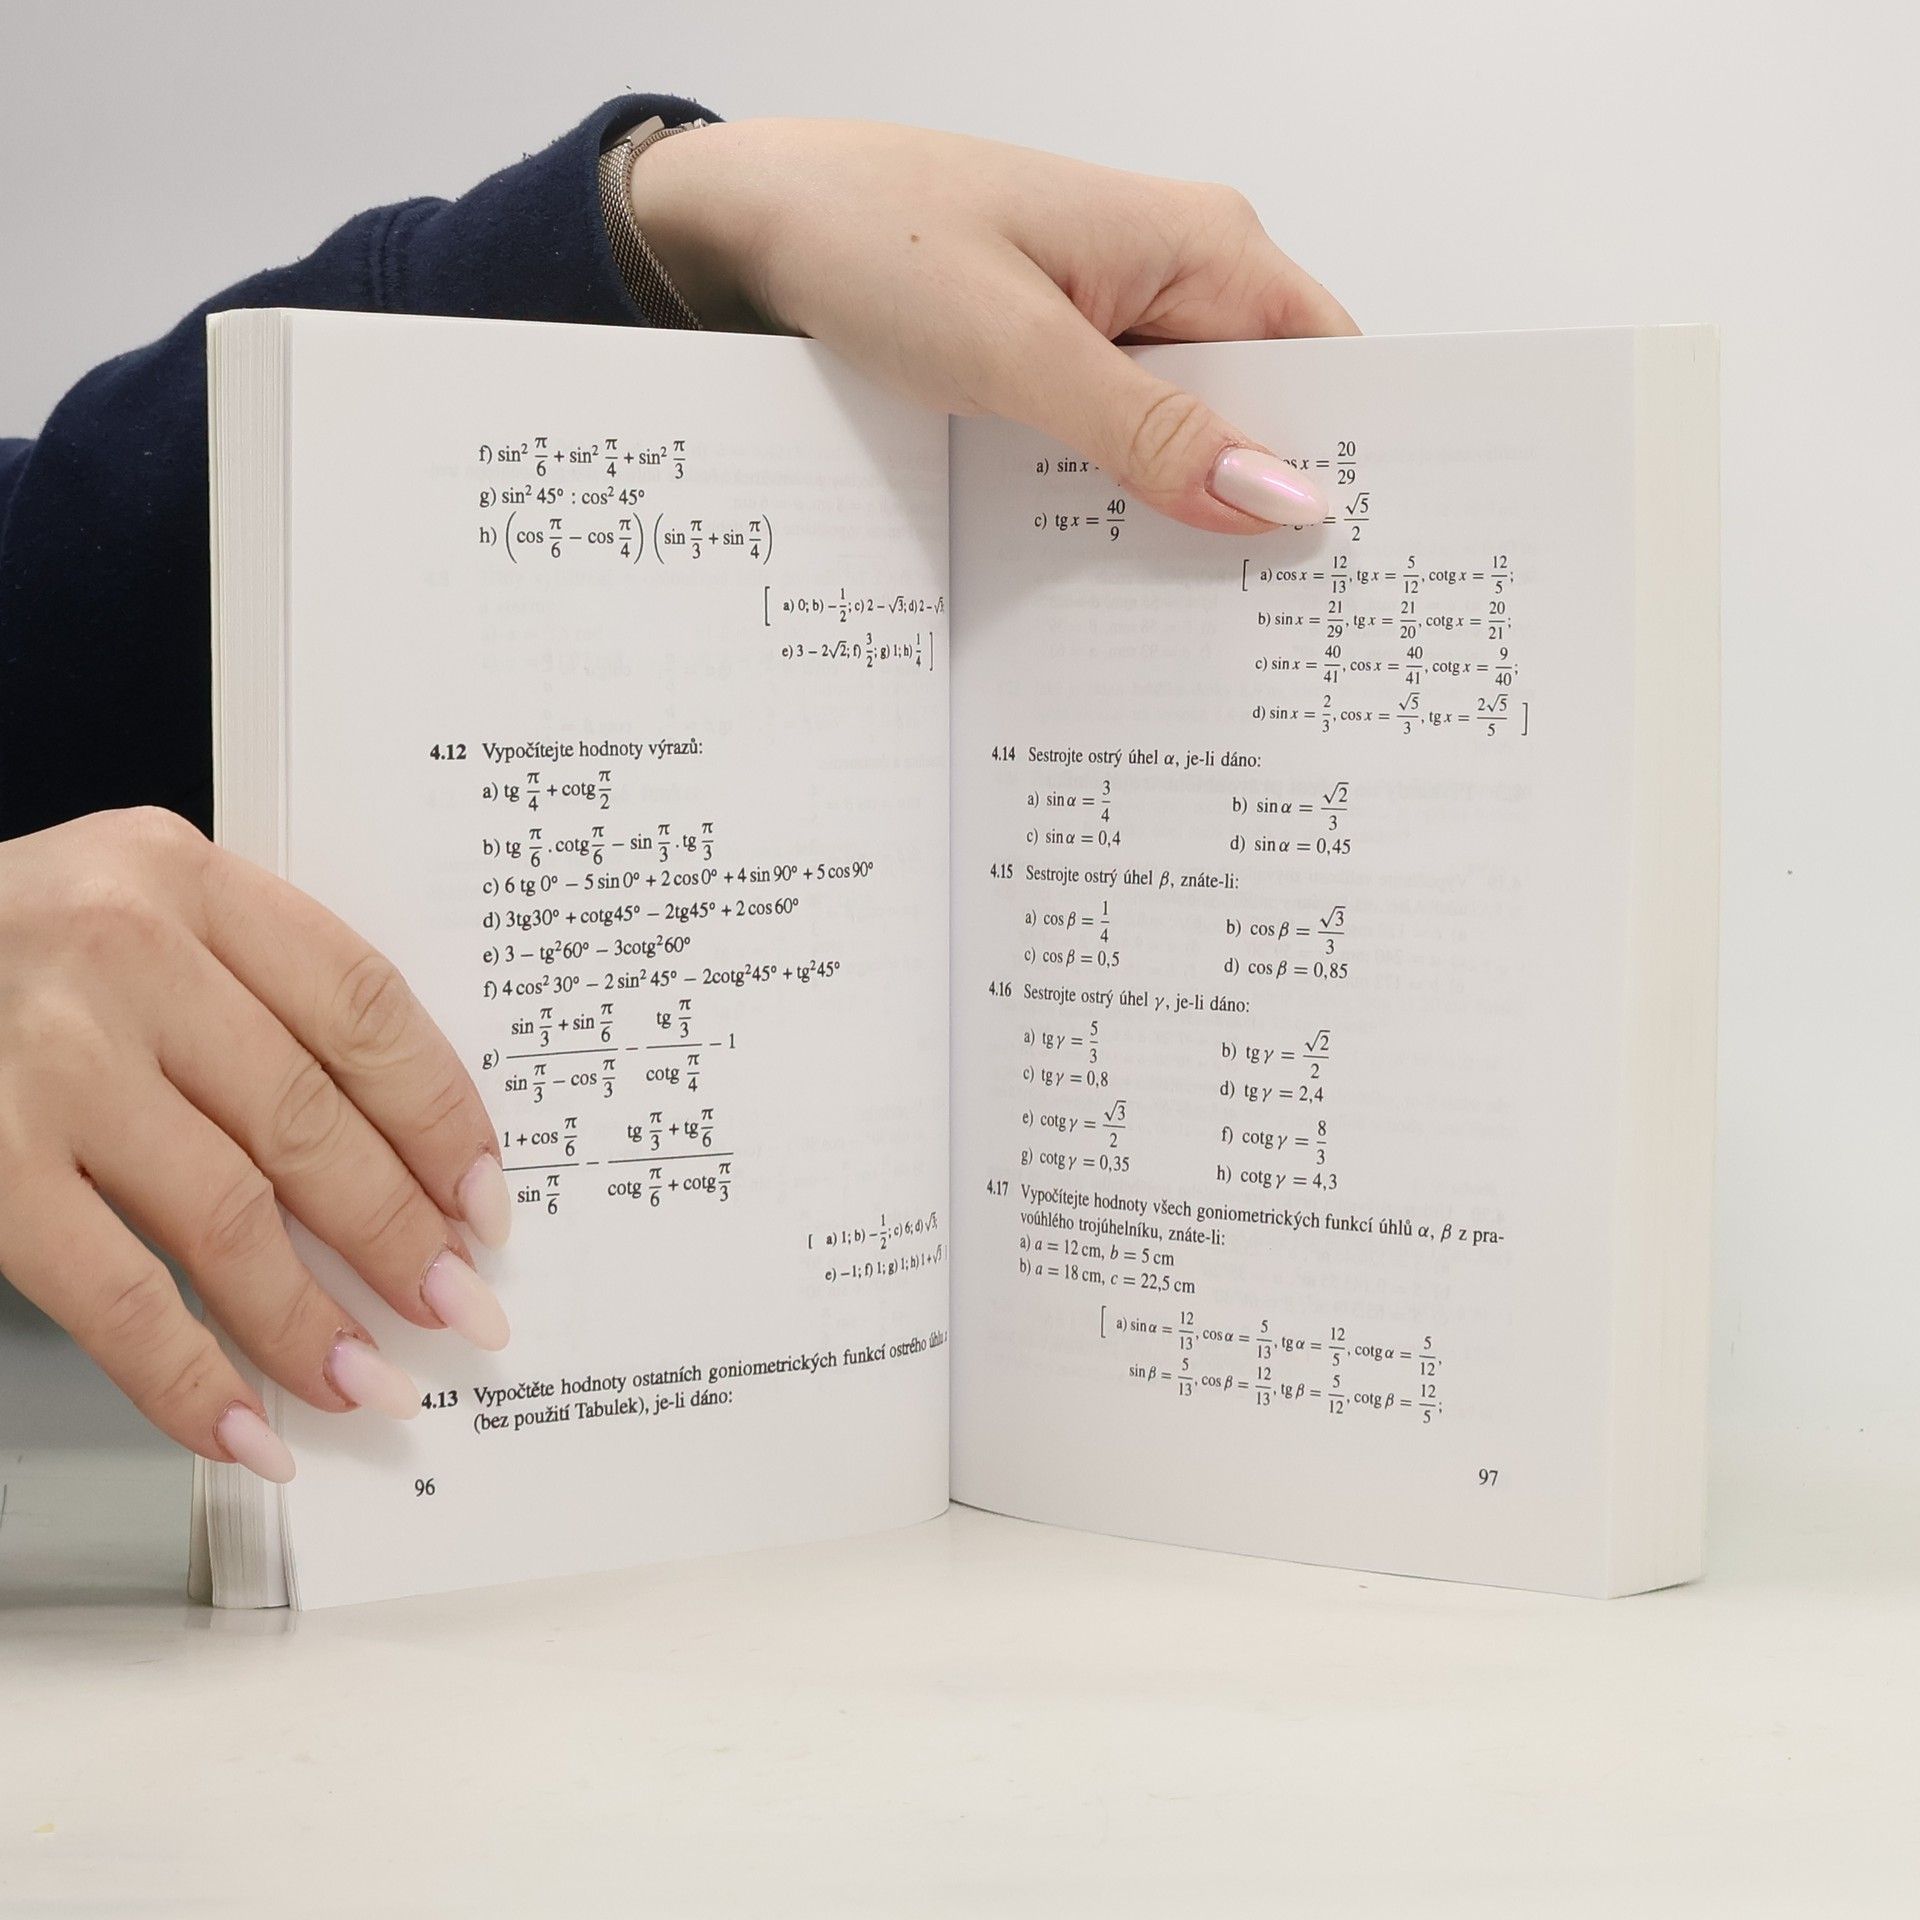 f) sin² π/6 + sin² π/4 + sin² π/3
g) sin² 45° : cos² 45°
h) (cos π/6 − cos π/4) (sin π/3 + sin π/4)
[ a) 0; b) −1/2; c) 2 − √3; d) 2 −
e) 3 − 2√2; f) 3/2; g) 1; h) 1/4 ]
4.12 Vypočítejte hodnoty výrazů:
a) tg π/4 + cotg π/2
b) tg π/6 . cotg π/6 − sin π/3 . tg π/3
c) 6 tg 0° − 5 sin 0° + 2 cos 0° + 4 sin 90° + 5 cos 90°
d) 3tg30° + cotg45° − 2tg45° + 2 cos 60°
e) 3 − tg²60° − 3cotg²60°
f) 4 cos² 30° − 2 sin² 45° − 2cotg²45° + tg²45°
g) (sin π/3 + sin π/6)/(sin π/3 − cos π/3) − (tg π/3)/(cotg π/4) − 1
(1 + cos π/6)/(sin π/6) − (tg π/3 + tg π/6)/(cotg π/6 + cotg π/3)
[ a) 1; b) −1/2; c) 6; d) √3;
e) −1; f) 1; g) 1; h) 1+√3
4.13 Vypočtěte hodnoty ostatních goniometrických funkcí ostrého úhlu
(bez použití Tabulek), je-li dáno:
96
a) sin x
x = 20/29
c) tg x = 40/9
= √5/2
[ a) cos x = 12/13, tg x = 5/12, cotg x = 12/5;
b) sin x = 21/29, tg x = 21/20, cotg x = 20/21;
c) sin x = 40/41, cos x = 40/41, cotg x = 9/40;
d) sin x = 2/3, cos x = √5/3, tg x = 2√5/5 ]
4.14 Sestrojte ostrý úhel α, je-li dáno:
a) sin α = 3/4 b) sin α = √2/3
c) sin α = 0,4 d) sin α = 0,45
4.15 Sestrojte ostrý úhel β, znáte-li:
a) cos β = 1/4 b) cos β = √3/3
c) cos β = 0,5 d) cos β = 0,85
4.16 Sestrojte ostrý úhel γ, je-li dáno:
a) tg γ = 5/3 b) tg γ = √2/2
c) tg γ = 0,8 d) tg γ = 2,4
e) cotg γ = √3/2 f) cotg γ = 8/3
g) cotg γ = 0,35 h) cotg γ = 4,3
4.17 Vypočítejte hodnoty všech goniometrických funkcí úhlů α, β z pra-
voúhlého trojúhelníku, znáte-li:
a) a = 12 cm, b = 5 cm
b) a = 18 cm, c = 22,5 cm
[ a) sin α = 12/13, cos α = 5/13, tg α = 12/5, cotg α = 5/12,
sin β = 5/13, cos β = 12/13, tg β = 5/12, cotg β = 12/5;
97